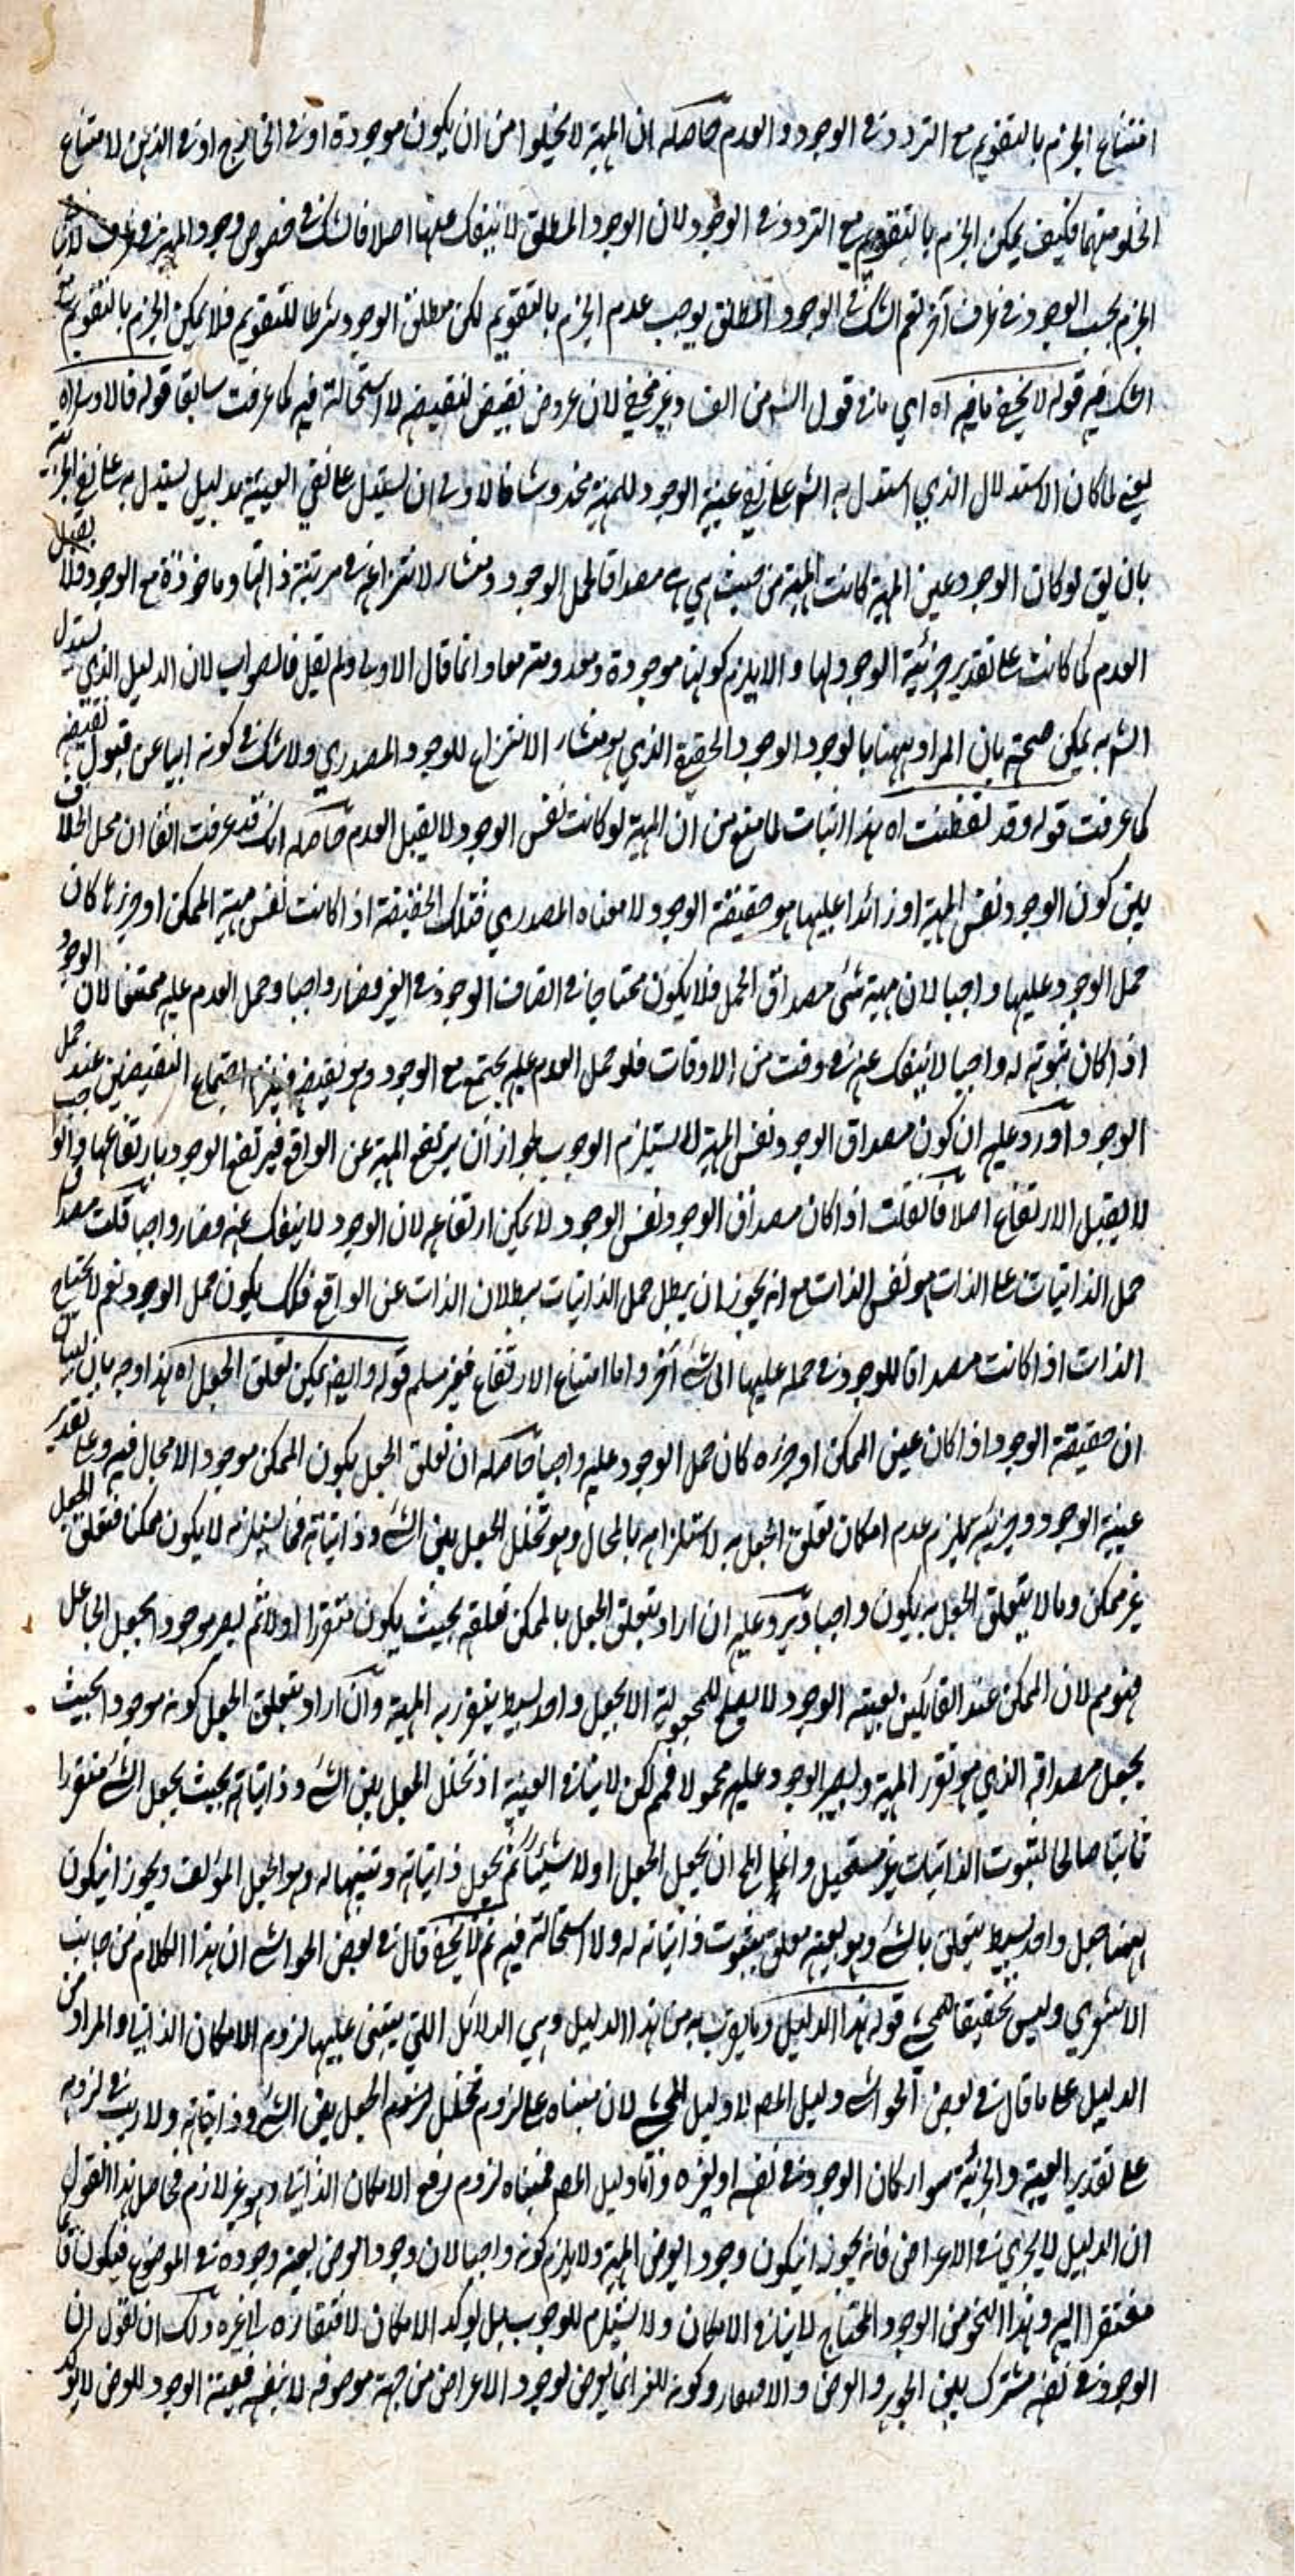 امتناع الجزم بالتقويم مع التردد في الوجود والعدم حاصله ان المهية لا يخلوا من ان يكون موجودة او في الخارج او في الذهن لامتناع
الخلو عنهما فكيف يمكن الجزم بالتقويم مع التردد في الوجود لان الوجود المطلق لا ينفك عنها اصلا فالشك في خصوص وجود المهية في ظرف
الجزم بحسب الوجود في ظرف آخر نعم الشك في الوجود المطلق يوجب عدم الجزم بالتقويم لكن مطلق الوجود شرطا للتقويم فلا يمكن الجزم بالتقويم
الشك فيه قوله لا يخفى ما فيه اه اي ما في قول الشه من الفساد غير مخفي لان عروض نقيض لنقيضه لا استحالة فيه كما عرفت سابقا قوله فالاولى اه
يعني لما كان الاستدلال الذي استدل به الشه على نفي عينية الوجود للمهية مخدوشا فالاولى ان يستدل على نفي العينية بدليل يستدل به على نفي الجزئية
بان يق لو كان الوجود عين المهية كانت المهية من حيث هي هي مصداقا لحمل الوجود ومنشأ لانتزاعه في مرتبة ذاتها وماخوذة مع الوجود فلا يقبل
العدم كما كانت على تقدير جزئية الوجود لها والا يلزم كونها موجودة ومعدومة معا وانما قال الاولى ولم يقل فالصواب لان الدليل الذي يستدل
الشه به يمكن صحته بان المراد ههنا بالوجود الوجود الحقيقي الذي هو منشأ الانتزاع للوجود المصدري ولا شك في كونه ابيا عن قبول نقيضه
كما عرفت قوله وقد تفطنت اه هذا اثبات لما منع من ان المهية لو كانت نفس الوجود لا يقبل العدم حاصله انك قد عرفت انفا ان محل الخلاف
بين كون الوجود نفس المهية او زائدا عليها هو حقيقة الوجود لا معناه المصدري فتلك الحقيقة اذا كانت نفس مهية الممكن او جزئها كان
حمل الوجود عليها واجبا لان مهية شئ مصداق الحمل فلا يكون محتاجا في اتصاف الوجود في الغير فصار واجبا وحمل العدم عليه ممتنعا لان الوجود
اذا كان ثبوته له واجبا لا ينفك عنه في وقت من الاوقات فلو حمل العدم عليه يجتمع مع الوجود وهو نقيضه فيلزم اجتماع النقيضين عند حمل
الوجود واورد عليه ان كون مصداق الوجود نفس المهية لا يستلزم الوجوب لجواز ان يرتفع المهية عن الواقع فيرتفع الوجود بارتفاعها والواجب
لا يقبل الارتفاع اصلا فان قلت اذا كان مصداق الوجود نفس الوجود لا يمكن ارتفاعه لان الوجود لا ينفك عنه فصار واجبا قلت مصداق
حمل الذاتيات على الذات هو نفس الذات مع انه يجوز ان يبطل حمل الذاتيات ببطلان الذات عن الواقع فكك يكون حمل الوجود نعم لا يحتاج
الذات اذا كانت مصداقا للوجود في حمله عليها الى شئ آخر واما امتناع الارتفاع فغير مسلم قوله وايضا يمكن تعلق الجعل اه هذا وجه ثان لبيان
ان حقيقة الوجود اذا كان عين الممكن او جزه كان حمل الوجود عليه واجبا حاصله ان تعلق الجعل بكون الممكن موجودا لا مجال فيه وعلى تقدير
عينية الوجود وجزئيته يلزم عدم امكان تعلق الجعل به لاستلزامه بالمحال وهو تخلل الجعل بين الشئ وذاتياته فما يستلزمه لا يكون ممكنا فتعلق الجعل
غير ممكن وما لا يتعلق الجعل به يكون واجبا ويرد عليه ان اراد بتعلق الجعل بالممكن تعلقه بحيث يكون متقررا اولا ثم يصير موجودا بجعل الجاعل
فهو مم لان الممكن عند القائلين بعينية الوجود لا يصلح للمجعولية الا بجعل واحد بسيط يتقرر به المهية وان اراد بتعلق الجعل كونه موجودا بحيث
يجعل مصداقه الذي هو تقرر المهية ويصير الوجود عليه محمولا فمسلم لكن لا ينافي العينية اذ تخلل الجعل بين الشئ وذاتياته بحيث يجعل الشئ متقررا
ثابتا صالحا لثبوت الذاتيات غير مستحيل وانما المح ان يجعل الجعل اولا شيئا ثم يجعل ذاتياته ويثبتها له وهو الجعل المؤلف ويجوز انيكون
ههنا جعل واحد بسيط يتعلق بالشئ وهو بعينه معلق بثبوت ذاتياته له ولا استحالة فيه ثم لا يخفى قال في بعض الحواشي ان هذا الكلام من جانب
الاشعري وليس تحقيقا للمحشي قوله هذا الدليل وما يقرب به من هذا الدليل وهي الدلائل التي يبتنى عليها لزوم الامكان الذاتي والمراد من
الدليل على ما قال في بعض الحواشي دليل المصه لا دليل المحشي لان مبناه على لزوم تخلل الجعل بين الشئ وذاتياته ولا ريب في لزومه
على تقدير العينية والجزئية سواء كان الوجود في نفسه او لغيره واما دليل المصه فمبناه لزوم رفع الامكان الذاتي وهو غير لازم فحاصل هذا القول
ان الدليل لا يجري في الاعراض فانه يجوز انيكون وجود العرض المهية ولا يلزم كونه واجبا لان وجود العرض بعينه وجوده في الموضوع فيكون
مفتقرا اليه وهذا النحو من الوجود المحتاج لا ينافي الامكان ولا يستلزم للوجوب بل يؤكد الامكان لافتقاره الى غيره ولك ان تقول ان
الوجود في نفسه مشترك بين الجوهر والعرض والافتقار وكونه للغير انما يعرض لوجود الاعراض من جهة موصوفه لا بنفسه فعينية الوجود للعرض